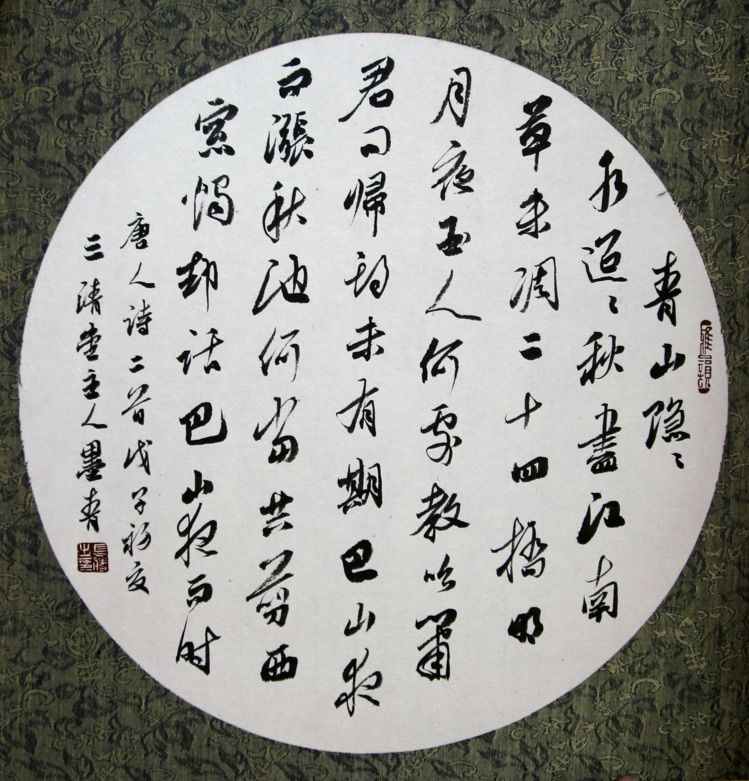 青山隐〻
水迢〻秋盡江南
草未凋二十四橋明
月夜玉人何处教吹簫
君问歸期未有期巴山夜
雨漲秋池何当共剪西
窗燭却話巴山夜雨时
唐人詩二首戊子初夏
三清堂主人墨青